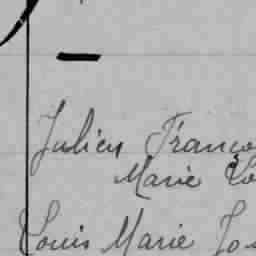 Julien Franço
Marie Lo
Louis Marie Jos